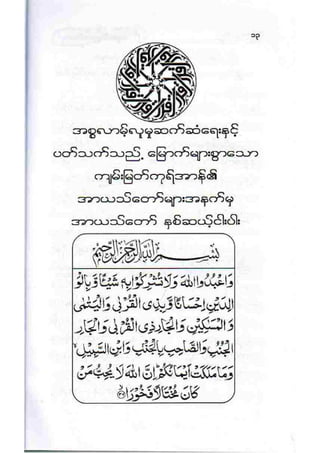 ၁၃
အစ္စလာမ့်လူမှုဆက်ဆံရေးနှင့်
ပတ်သက်သည့် မြောက်များစွာသော
ကျမ်းမြတ်ကုရ်အာန်၏
အာယသ်တော်များအနက်မှ
အာယသ်တော် နှစ်ဆယ့်ငါးပါး
بِسْمِ اللهِ الرَّحْمٰنِ الرَّحِيْمِ
وَاعْبُدُوا اللهَ وَلَا تُشْرِكُوْا بِهٖ شَيْئًا وَّ بِالْوَ
الِدَيْنِ اِحْسَانًا وَّ بِذِى الْقُرْبٰى وَالْيَتٰمٰى
وَالْمَسٰكِيْنِ وَالْجَارِ ذِى الْقُرْبٰى وَالْجَارِ
الْجُنُبِ وَالصَّاحِبِ بِالْجَنْبِ وَابْنِ السَّبِيْلِ
وَمَا مَلَكَتْ اَيْمَانُكُمْ اِنَّ اللهَ لَا يُحِبُّ مَنْ
كَانَ مُخْتَالًا فَخُوْرًا ﴿٣٦﴾